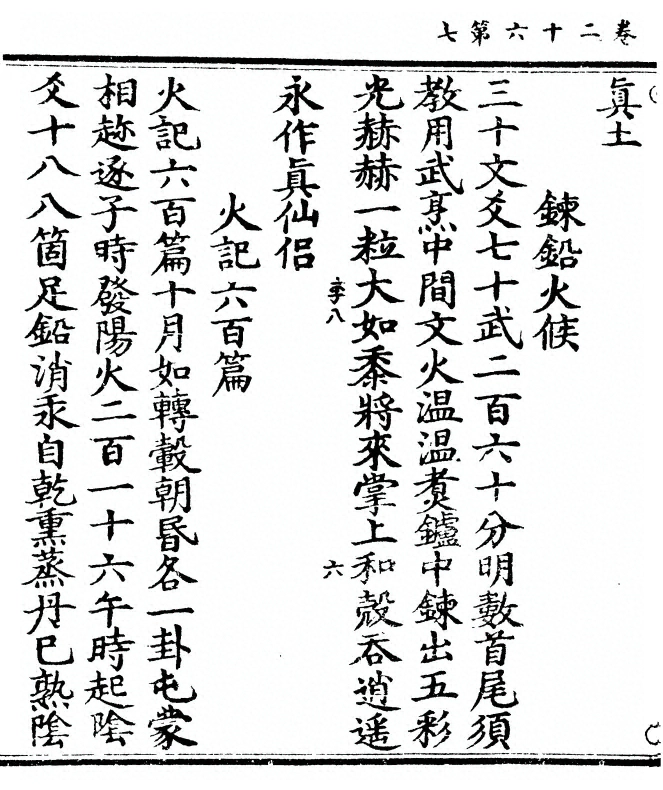 卷二十六第七
眞土
鍊鉛火候
三十文爻七十武二百六十分明數首尾須
教用武烹中間文火温温煑鑪中鍊出五彩
光赫赫一粒大如黍將來掌上和殼吞逍遥
李八
六
永作眞仙侣
火記六百篇
火記六百篇十月如轉轂朝昏各一卦屯蒙
相趂逐子時發陽火二百一十六午時起陰
爻十八八箇足鉛消汞自乾熏蒸丹已熟陰